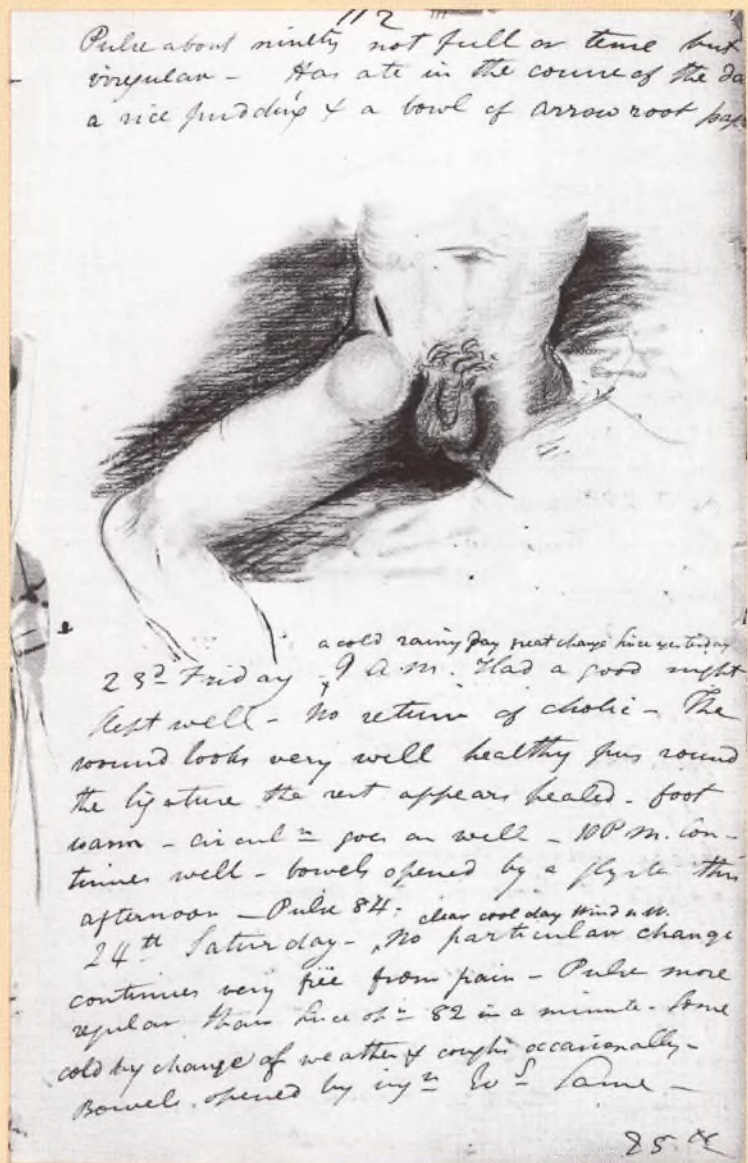 112
Pulse about ninety not full or tense but
irregular – Has ate in the course of the da
a rice pudding & a bowl of arrow root pap
a cold rainy day great change since yesterday
23d Friday 9 a.m. Had a good night
slept well – No return of cholic – The
wound looks very well healthy pus round
the ligature the rest appears healed – foot
warm – circuln goes on well – 10 P.M. Con-
tinues well – bowels opened by a glyster this
afternoon – Pulse 84.
clear cool day Wind N.W.
24th Saturday – No particular change
continues very free from pain – Pulse more
regular than since opn 82 in a minute – Some
cold by change of weather & coughs occasionally –
Bowels opened by injn Wd Same –
25th